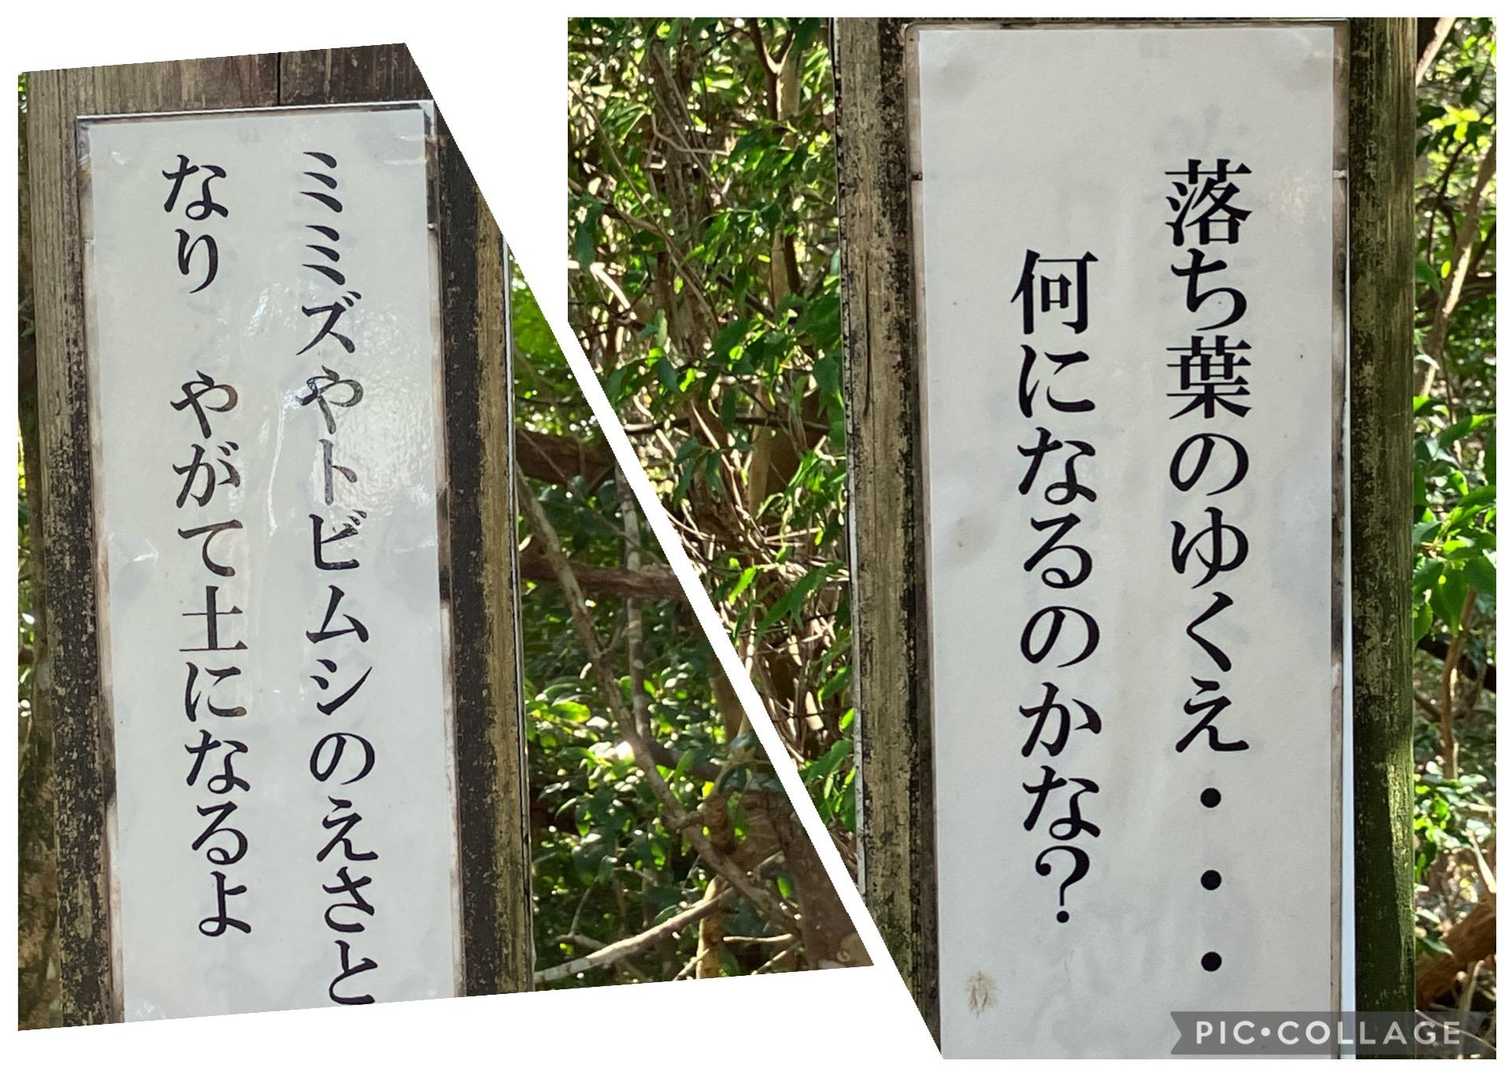 落ち葉のゆくえ・・・
何になるのかな？
ミミズやトビムシのえさと
なり　やがて土になるよ
PIC•COLLAGE